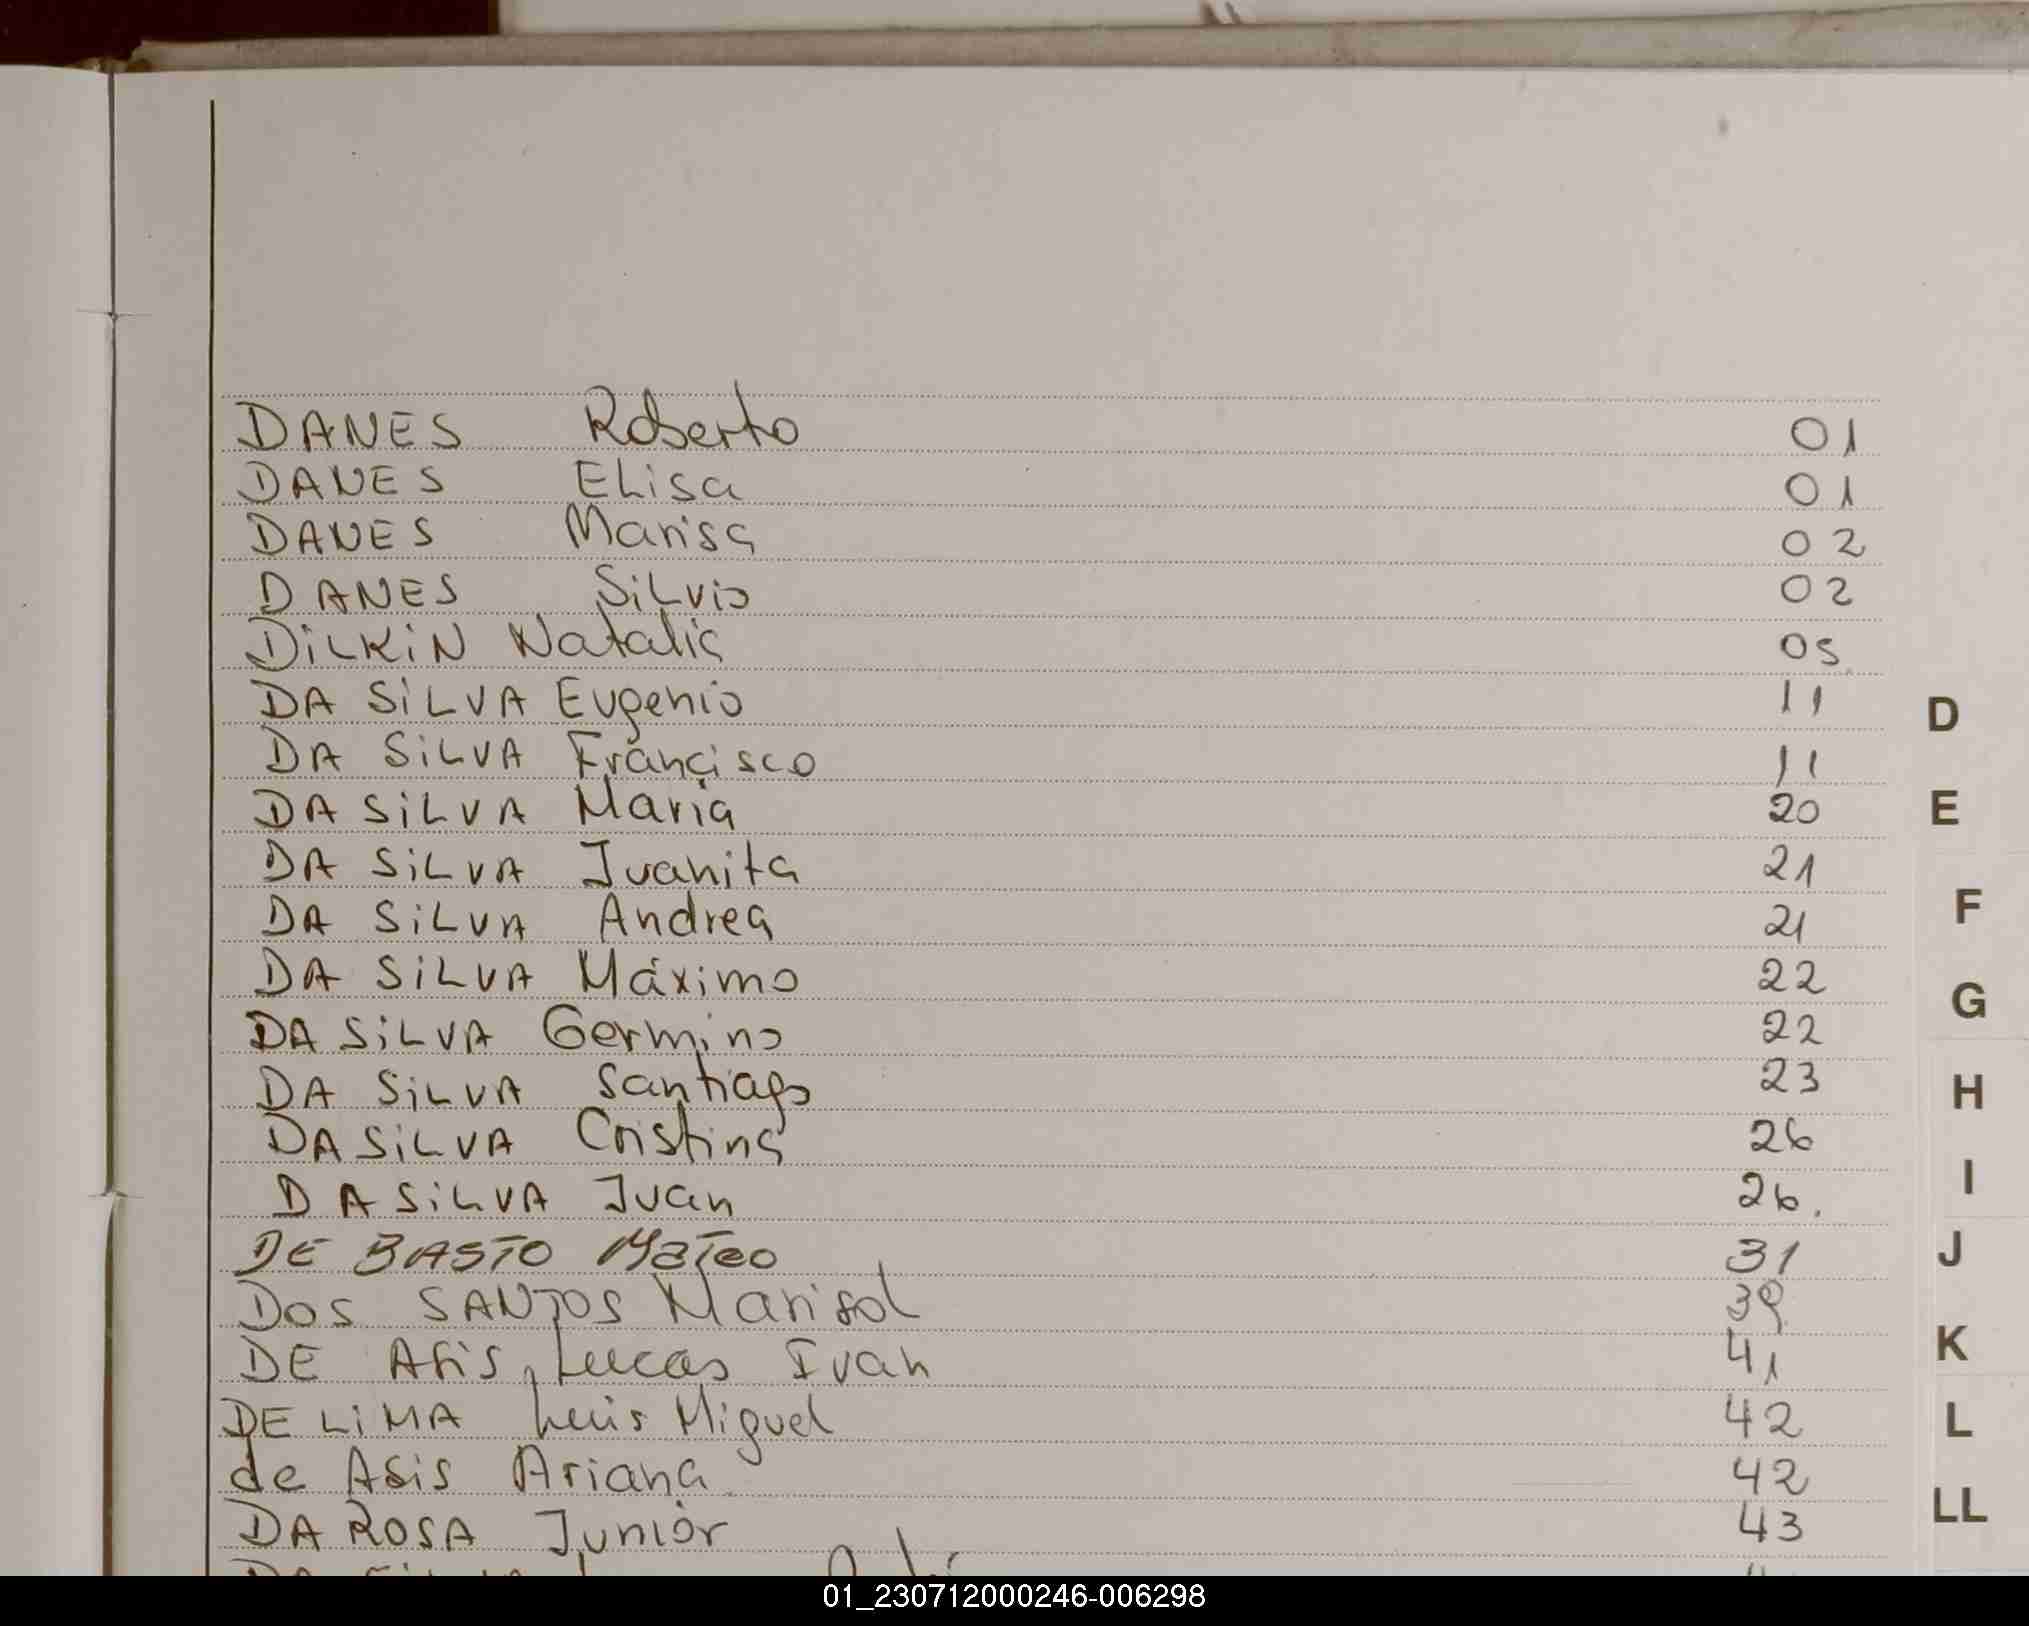 DANES Roberto 01
DANES Elisa 01
DANES Marisa 02
DANES Silvio 02
DILKIN Natalia 05
DA SILVA Eugenio 11
D
DA SILVA Francisco 11
DA SILVA Maria 20
E
DA SILVA Juanita 21
DA SILVA Andrea 21
F
DA SILVA Máximo 22
G
DA SILVA Germino 22
DA SILVA Santiago 23
H
DA SILVA Cristina 26
DA SILVA Juan 26.
I
DE BASTO Mateo 31
J
DOS SANTOS Marisol 39
DE Asis, Lucas Ivan 41
K
DE LIMA Luis Miguel 42
L
de Asis Ariana 42
DA ROSA Junior 43
LL
01_230712000246-006298